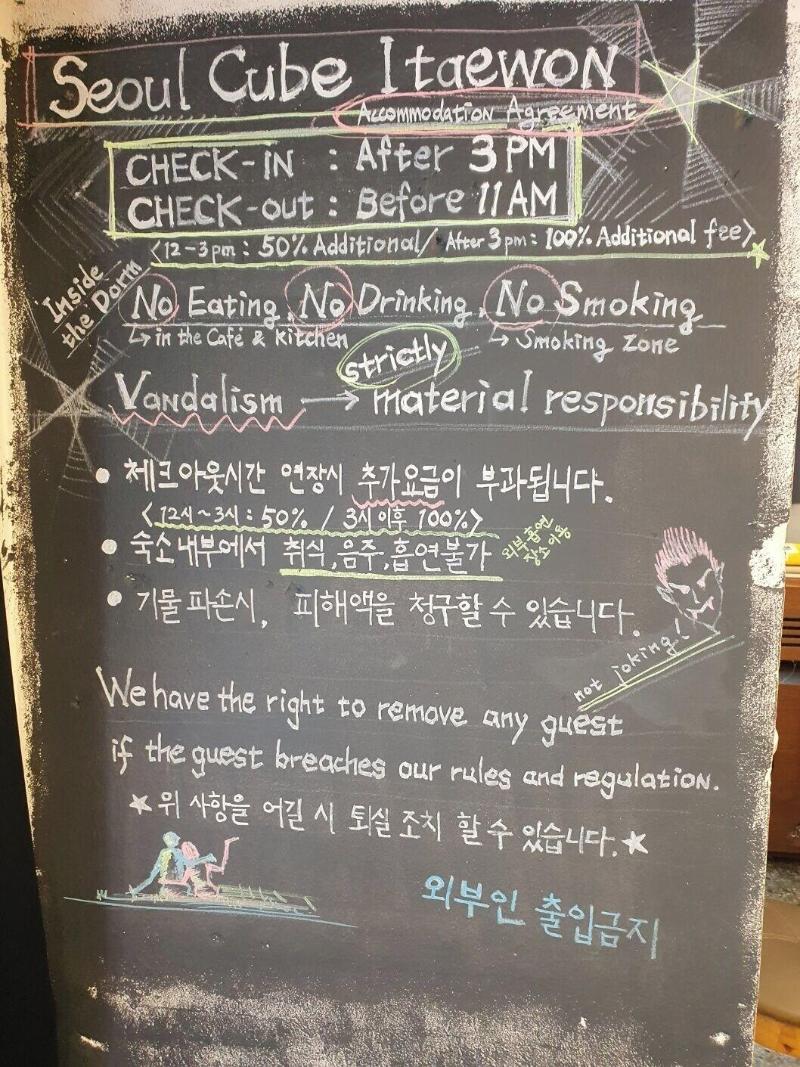 Seoul Cube Itaewon
Accommodation Agreement
CHECK-IN : After 3PM
CHECK-out : Before 11AM
<12-3pm : 50% Additional / After 3pm : 100% Additional fee>
Inside
the Dorm
No Eating, No Drinking, No Smoking
↳ in the Café & Kitchen
↳ Smoking Zone
strictly
Vandalism → material responsibility
• 체크아웃시간 연장시 추가요금이 부과됩니다.
<12시~3시 : 50% / 3시이후 100%>
• 숙소내부에서 취식, 음주, 흡연불가
외부 흡연
장소 이동
• 기물파손시, 피해액을 청구할 수 있습니다.
not joking!
We have the right to remove any guest
if the guest breaches our rules and regulation.
★위 사항을 어길 시 퇴실 조치 할 수 있습니다.★
외부인 출입금지